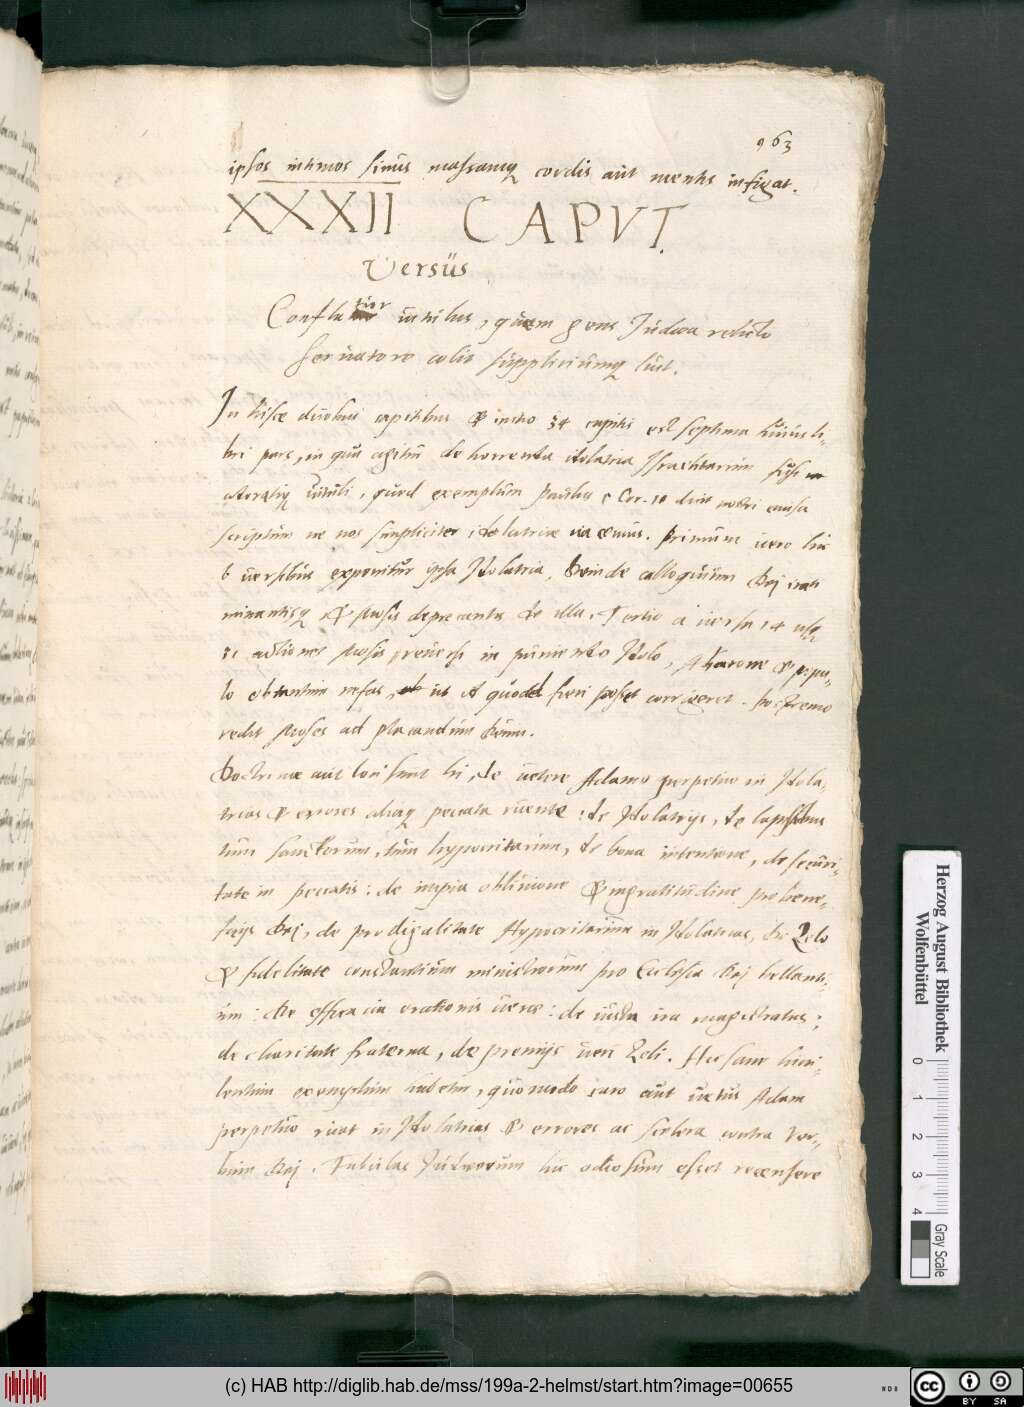 963
ipsos intimos sinus massamq cordis aut mentis infigat.
XXXII CAPVT.
Versus
Conflatur vitulus, quem gens Judæa relicto
Servatore colit suppliciumq luit.
In hisce duobus capitibus & initio 34 capitis est septima huius li-
bri pars, in qua agitur de horrenda idolatria Israelitarum
vituli, quod exemplum Paulus Cor. 10 dicit nostri causa
scriptum ne nos simpliciter idolatriæ vacemus. Primum vero hic
6 versibus exponitur ipsa Idolatria, Deinde colloquium Dei irati
minantisq & Mosis deprecantis de illa. Tertio a versu 14 usq
actiones Mosis reversi in puniendo Idolo, Aharone & popu-
lo obtantum nefas, ut quod fieri posset corrigeret. Postremo
redit Moses ad placandum Deum.
Doctrinæ aut loci sunt hi, de vetere Adamo perpetuo in Idola-
trias & errores aliaq peccata ruente: de Idolatrijs, de lapsibus
tum sanctorum, tum hypocritarum, de bona intentione, de securi-
tate in peccatis: de impia oblivione & ingratitudine pro bene-
ficijs Dei, de prodigalitate Hypocritarum in Idolatrias, De Zelo
& fidelitate constantium ministrorum pro Ecclesia Dei bellanti-
um: De efficacia orationis veræ: de iusta ira magistratus;
de charitate fraterna, de premijs veri Zeli. Hic sane lucu-
lentum exemplum habetur, quomodo caro aut vetus Adam
perpetuo ruat in Idolatrias & errores ac scelera contra Ver-
bum Dei. Fabulas Judæorum hic odiosum esset recensere
Herzog August Bibliothek
Wolfenbüttel
0 1 2 3 4
Gray Scale
(c) HAB http://diglib.hab.de/mss/199a-2-helmst/start.htm?image=00655
cc BY SA